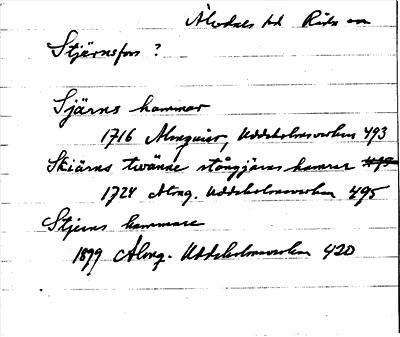 Älvdals hd Råda sn
Stjärnsfors ?
Sjärns hammar
1716 Almquist, Uddeholmsverken 493
Skiärns twänne stångjärns hamrar
1724 Almq. Uddeholmsverken 495
Stjerns hammare
1899 Almq. Uddeholmsverken 420